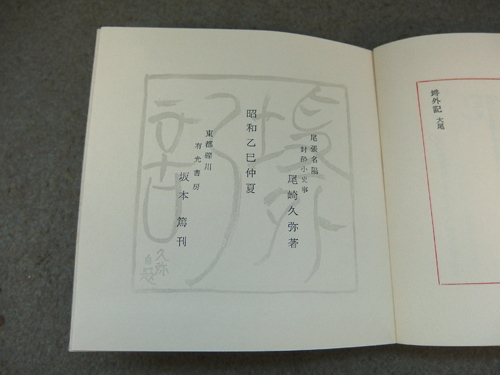 外記 大尾
尾張名
小史事
尾崎久弥著
昭和乙巳仲夏
東都礫川
有光書房
坂本 篤刊
久弥
自題